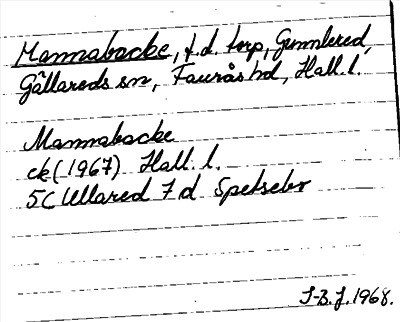 Mannabacke, f.d. torp, Gunnlered,
Gällareds sn, Faurås hd, Hall. l.
Mannabacke
ek (1967) Hall. l.
5C Ullared 7 d Spetsebo
I-B. J. 1968.